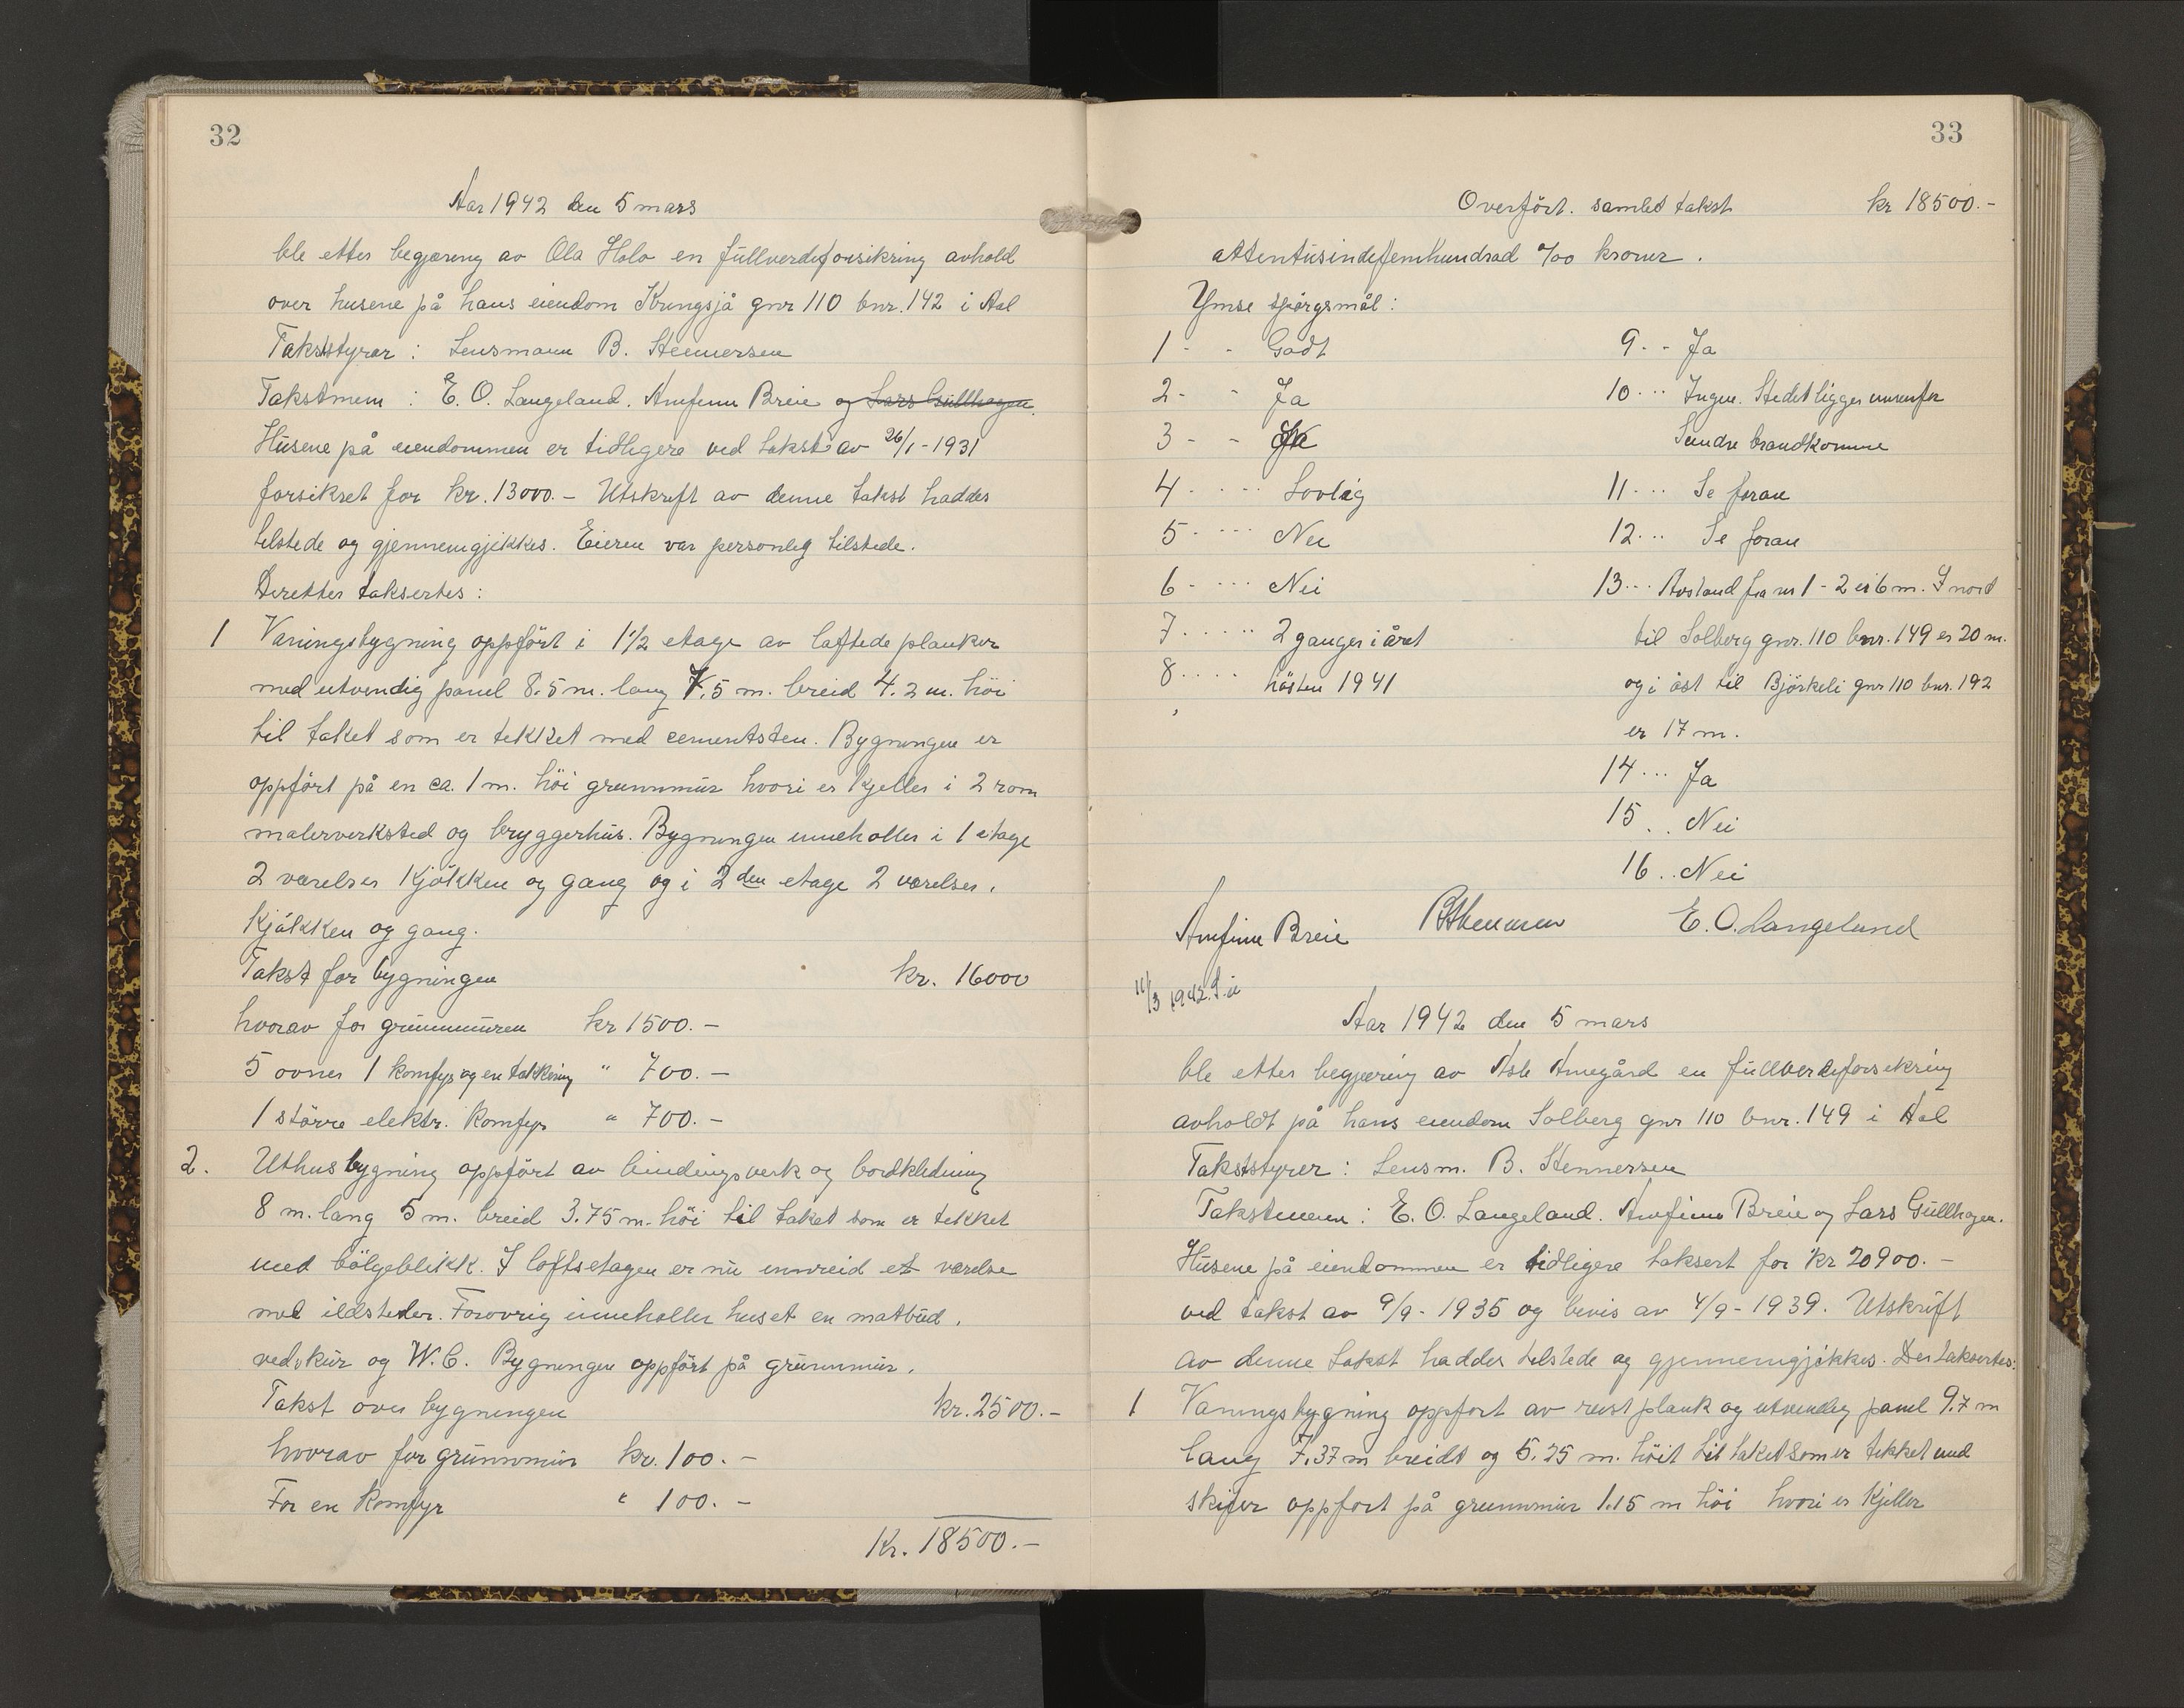 32
Aar 1942 den 5 mars
ble etter begjæring av Ola Holo en fullverdiforsikring avhold
over husene på hans eiendom Krungsjå gnr 110 bnr. 142 i Aal
Takststyrar : Lensmann B. Stennersen
Takstmenn : E. O. Langeland. Arnfinn Breie og Lars Gullhagen.
Husene på eiendommen er tidligere ved takst av 26/1-1931
forsikret for kr. 13000.- Utskrift av denne takst haddes
tilstede og gjennemgjikkes. Eieren var personlig tilstede.
Deretter taksertes :
1 Vaningsbygning oppfört i 1 1/2 etage av laftede planker
med utvendig panel 8.5 m. lang 7.5 m. breid 4.2 m. höi
til taket som er tekket med cementsten. Bygningen er
oppfört på en ca. 1 m. höi grunnmur hvori er kjeller i 2 rom
malerverksted og bryggerhus. Bygningen inneholler i 1 etage
2 værelser kjökken og gang og i 2den etage 2 værelser.
kjökken og gang.
Takst for bygningen kr. 16000
hvorav for grunnmuren kr 1500.-
5 ovner 1 komfyr og en takkering " 700.-
1 större elektr. komfyr " 700.-
2. Uthusbygning oppfört av bindingsverk og bordkledning
8 m. lang 5 m. breid 3.75 m. höi til taket som er tekket
med bölgeblikk. I loftsetagen er nu innreid et værelse
med ildsteder. Forövrig inneholler huset en matbud.
vedskur og W.C. Bygningen oppfört på grunnmur.
Takst over bygningen kr. 2500.-
hvorav for grunnmur kr. 100.-
For en komfyr " 100.-
Kr. 18500.-
33
Overfört. samlet takst kr 18500.-
attentusindefemhundrad 0/00 kroner.
Ymse spörgsmål :
1 - - Godt
2 - - Ja
3 - - Ja
4 .... Lovlig
5 .... Nei
6 .... Nei
7 .... 2 ganger i året
8 .... hösten 1941
9 - - Ja
10 ... Ingen. Stedet ligger innenfor
Sundre brandkomune
11 ... Se foran
12 ... Se foran
13 ... Avstand fra nr 1 - 2 er 6 m. I nord
til Solberg gnr. 110 bnr. 149 er 20 m.
og i öst til Björkeli gnr 110 bnr. 192
er 17 m.
14 ... Ja
15 .. Nei
16 .. Nei
Arnfinn Breie BStennersen E. O. Langeland
11/3 1942.
Aar 1942 den 5 mars
ble etter begjæring av Asle Arnegård en fullverdiforsikring
avholdt på hans eiendom Solberg gnr 110 bnr. 149 i Aal
Takststyrer : Lensm. B. Stennersen
Takstmenn : E. O. Langeland. Arnfinn Breie og Lars Gullhagen.
Husene på eiendommen er tidligere taksert for kr 20900.-
ved takst av 9/9-1935 og bevis av 4/9-1939. Utskrift
av denne takst haddes tilstede og gjennemgjikkes. Der taksertes:
1 Vaningsbygning oppfort av reist plank og utvendig panel 9.7 m
lang 7.37 m breidt og 5.25 m. höit til taket som er tekket med
skifer oppfort på grunnmur 1.15 m höi hvori er kjeller